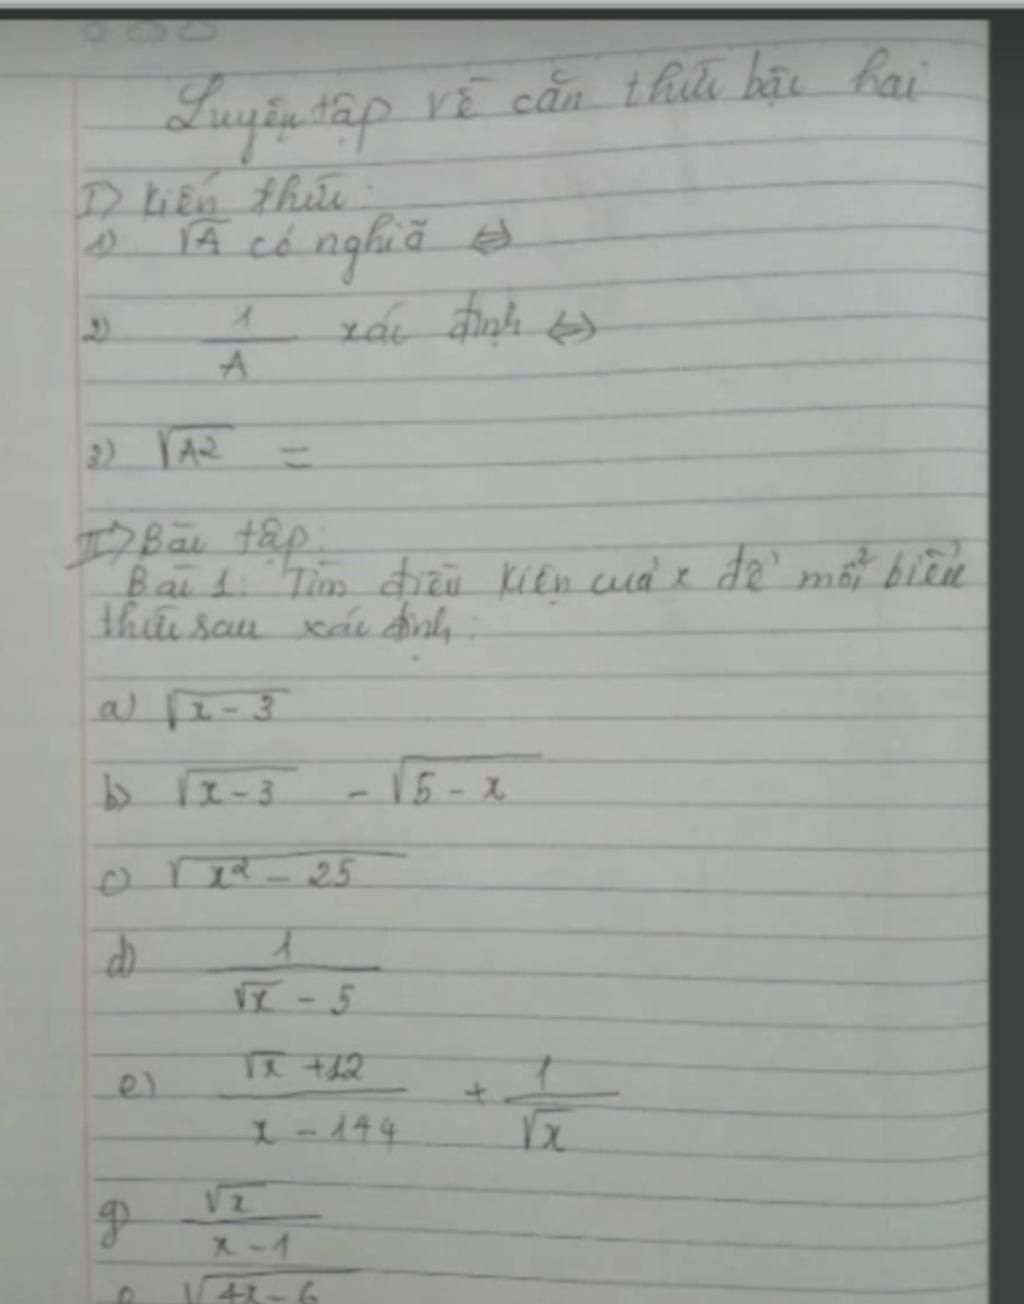 Luyện tập về căn thức bậc hai
I) Kiến thức:
1) √A có nghĩa ⇔
2) 1/A xác định ⇔
3) √A2 =
II) Bài tập:
Bài 1: Tìm điều kiện của x để mỗi biểu
thức sau xác định:
a) √(x - 3)
b) √(x - 3) - √(5 - x)
c) √(x² - 25)
d) 1/(√x - 5)
e) (√x + 12)/(x - 144) + 1/√x
g) √x/(x - 1)
√(4x - 6)